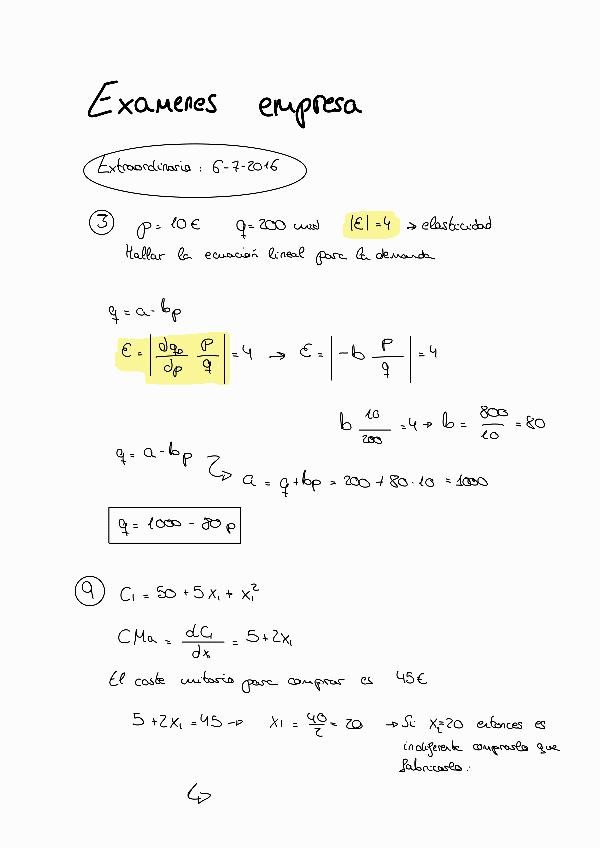 Examenes empresa
Extraordinaria : 6-7-2016
③ p = 10€ q = 200 und |ε| = 4 → elasticidad
Hallar la ecuación lineal para la demanda
q = a - bp
ε = | dq/dp p/q | = 4 → ε = | -b p/q | = 4
b 10/200 = 4 → b = 800/10 = 80
q = a - bp
a = q + bp = 200 + 80·10 = 1000
q = 1000 - 80p
⑨ C₁ = 50 + 5x₁ + x₁²
CMa = dC₁/dx = 5 + 2x₁
El coste unitario para comprar es 45€
5 + 2x₁ = 45 → x₁ = 40/2 = 20 → Si x₁=20 entonces es
indiferente comprarlo que
fabricarlo.